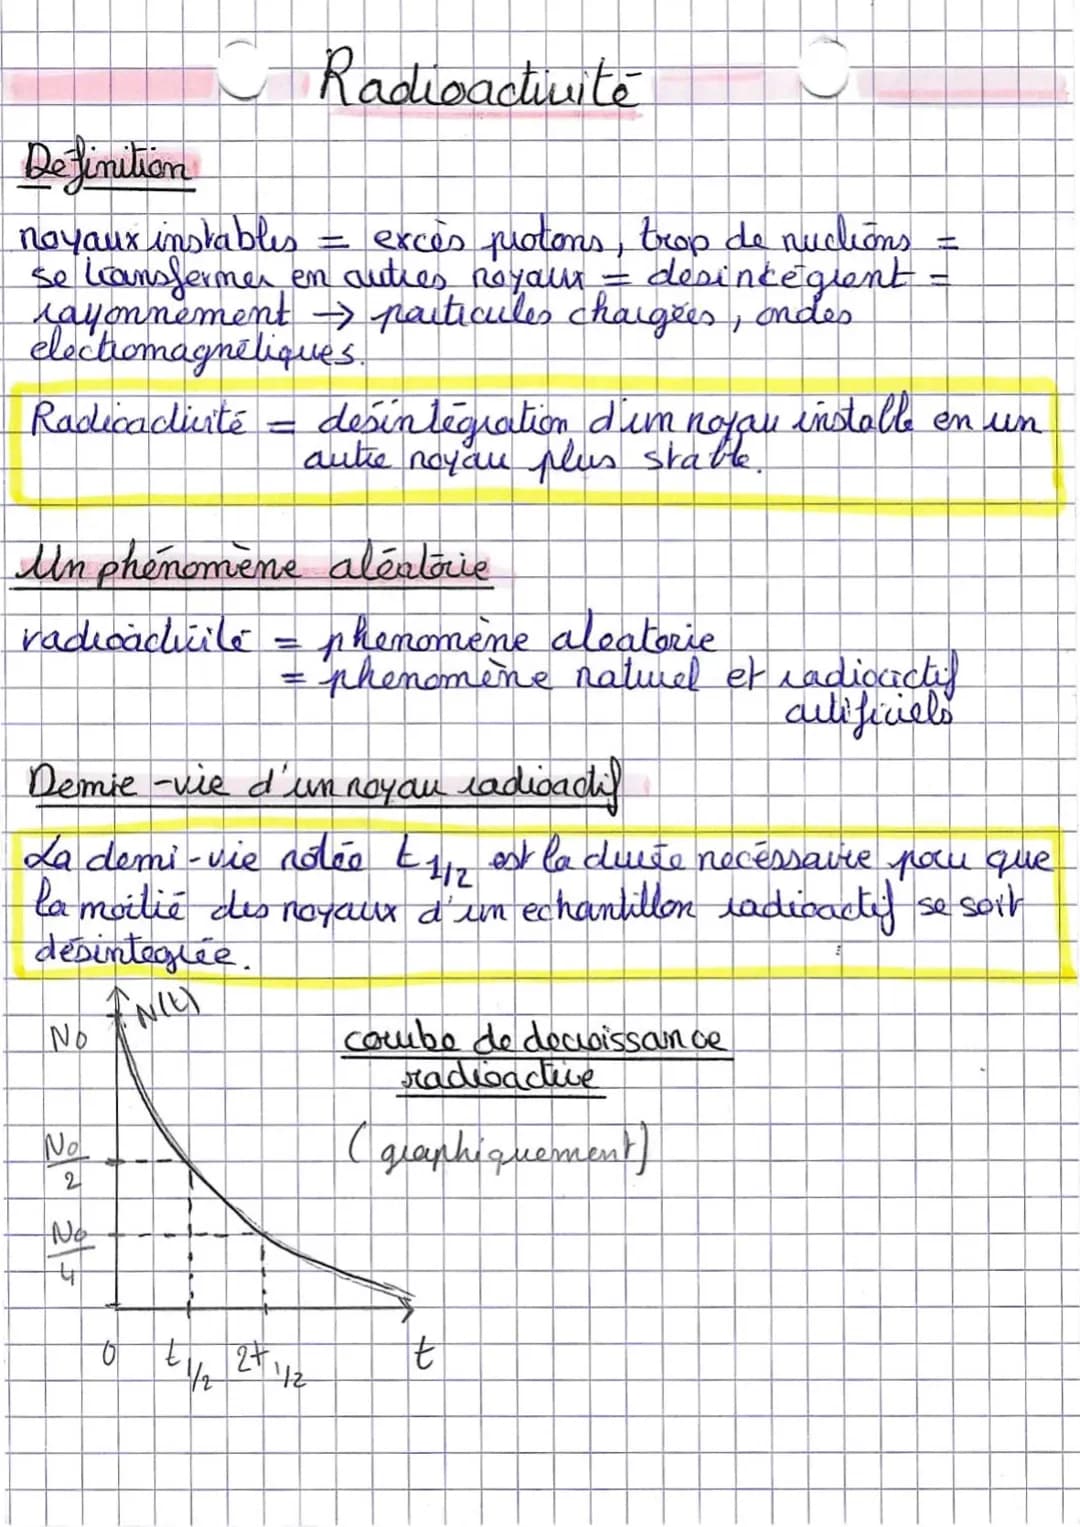 Radioactivité
Definition
noyaux instables = excès protons, trop de nucléons =
se transformer en autres noyaux = desintégrent =
rayonnement → particules chargées, ondes
electromagnétiques.
Radioactivité = desintégration d'un noyau instable en un
autre noyau plus stable.
Un phénomène aléatoire
radioactivité = phenomène aleatorie
= phenomène naturel et radioactif
artificiels
Demie-vie d'un noyau radioactif
La demi-vie notée t 1/2 est la durée necéssaire pour que
la moitié des noyaux d'un echantillon radioactif se soit
désintegrée.
N(t)
N0
courbe de decroissance
radioactive
(graphiquement)
N0/2
N0/4
0 t 1/2 2t 1/2 t